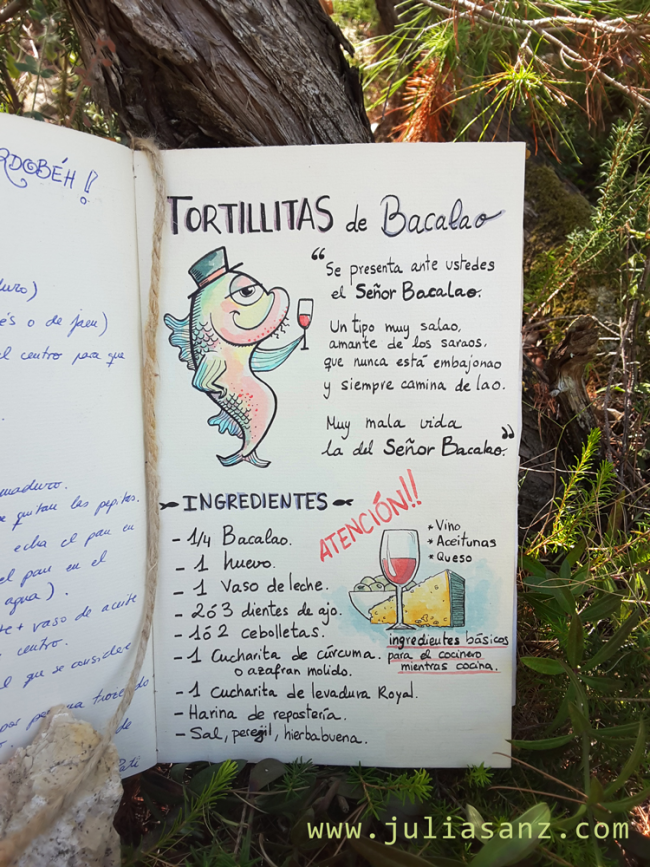 RDOBÉH!
uro)
és o de jaen)
el centro para que
maduro.
e quitan las pepitas.
echa el pan en
el pan en el
agua).
te + vaso de aceite
centro.
el que se considere
TORTILLITAS de Bacalao
“Se presenta ante ustedes
el Señor Bacalao.
Un tipo muy salao,
amante de los saraos,
que nunca está embajonao
y siempre camina de lao.
Muy mala vida
la del Señor Bacalao.”
INGREDIENTES
- 1/4 Bacalao.
- 1 huevo.
- 1 Vaso de leche.
- 2 ó 3 dientes de ajo.
- 1 ó 2 cebolletas.
- 1 Cucharita de cúrcuma.
o azafran molido.
- 1 Cucharita de levadura Royal.
- Harina de repostería.
- Sal, perejil, hierbabuena.
ATENCIÓN!!
* Vino
* Aceitunas
* Queso
ingredientes básicos
para el cocinero
mientras cocina.
www.juliasanz.com